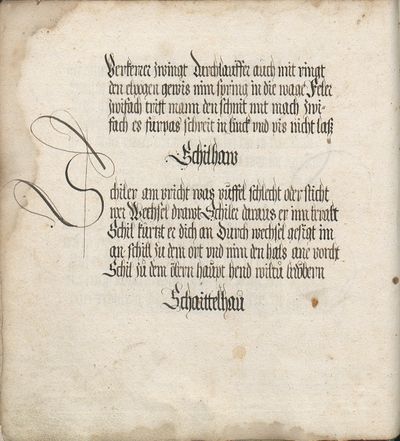 Verkerer zwingt durchlauffer auch mit ringt
den elpogen gewis nim spring in die wage Feler
zwifach trift mann den schnit mit mach Zwi-
fach es furpas schreit in linck vnd pis nicht laß
Schilhaw
Schiler ain pricht was püffel schlecht oder sticht
wer Wechsel drawt Schiler daraus er inn beraubt
Schil kürtzt er dich an Durch wechsel gesigt im
an schill zu dem ort vnd nim den hals ane vorcht
Schil zu dem obern haupt hend wiltu bedöbern
Schaittelhau